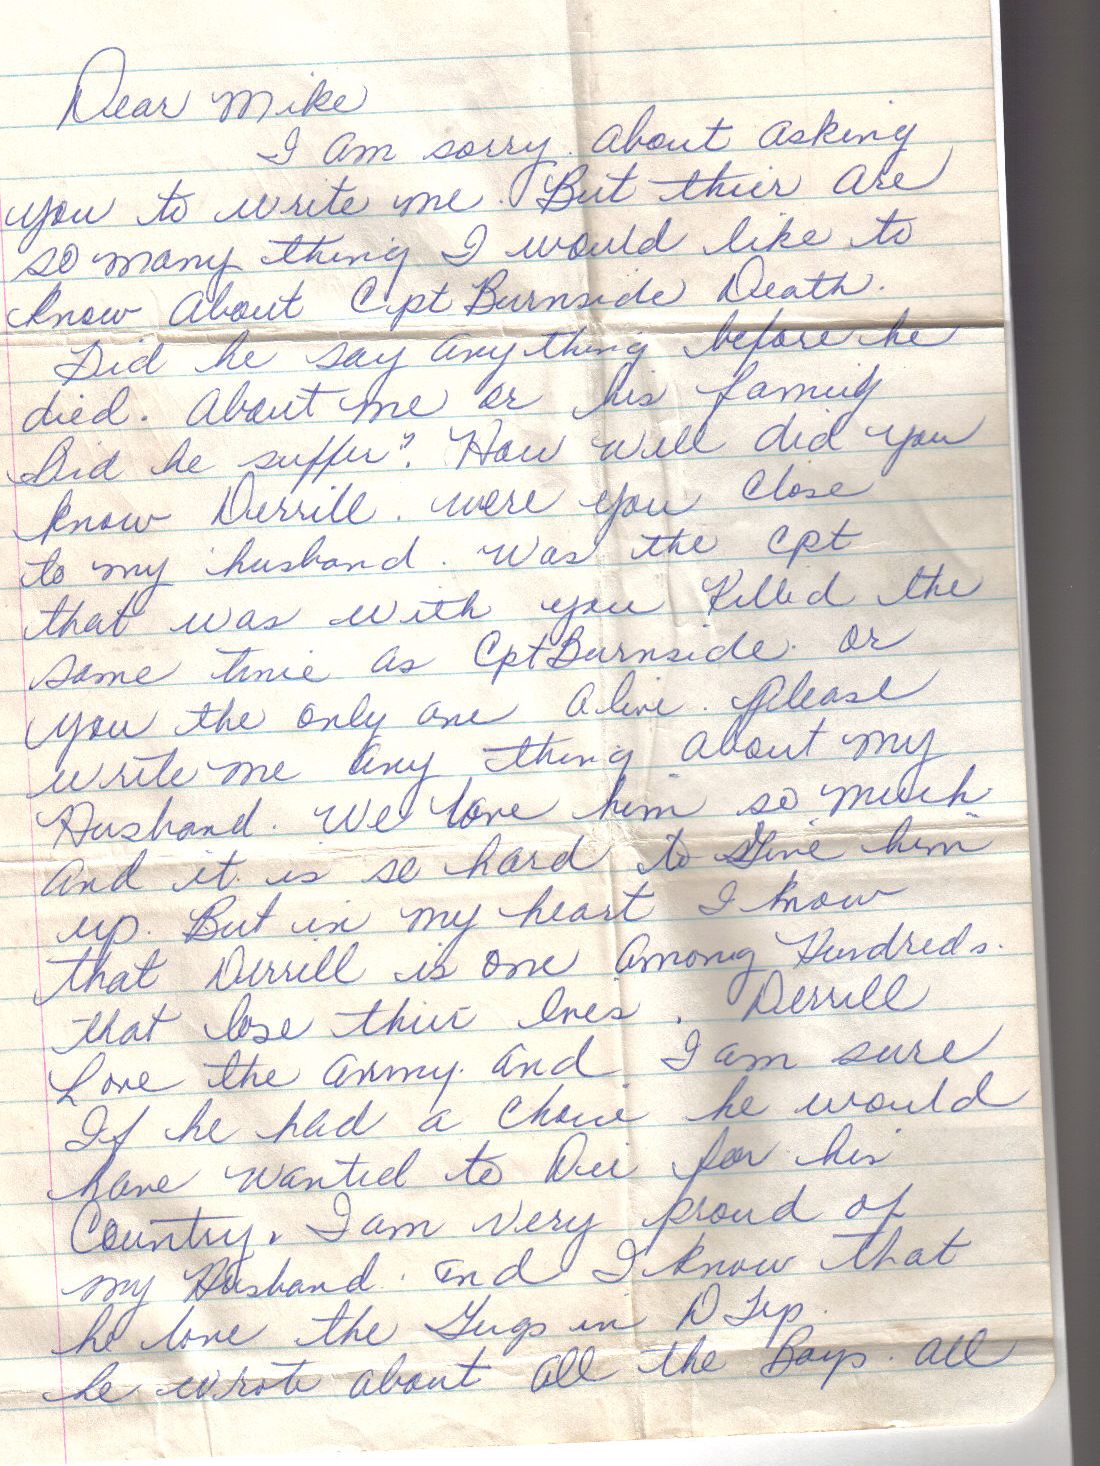 Dear Mike
I am sorry. about asking
you to write me. But thier are
so many thing I would like to
know about Cpt Burnside Death.
Did he say anything before he
died. about me or his family
Did he suffer? How well did you
know Derrill. were you close
to my husband. Was the Cpt
that was with you Killed the
same time as Cpt Burnside. or
you the only one alive. Please
write me any thing about my
Husband. We love him so much
and it is so hard to give him
up. But in my heart I know
that Derrill is one among Hundreds.
that lose thier lives. Derrill
Love the army. and I am sure
If he had a choice he would
have wanted to Die for his
Country. I am very proud of
my Husband. and I know that
he love the Guys in D Trp.
he wrote about all the Boys. all